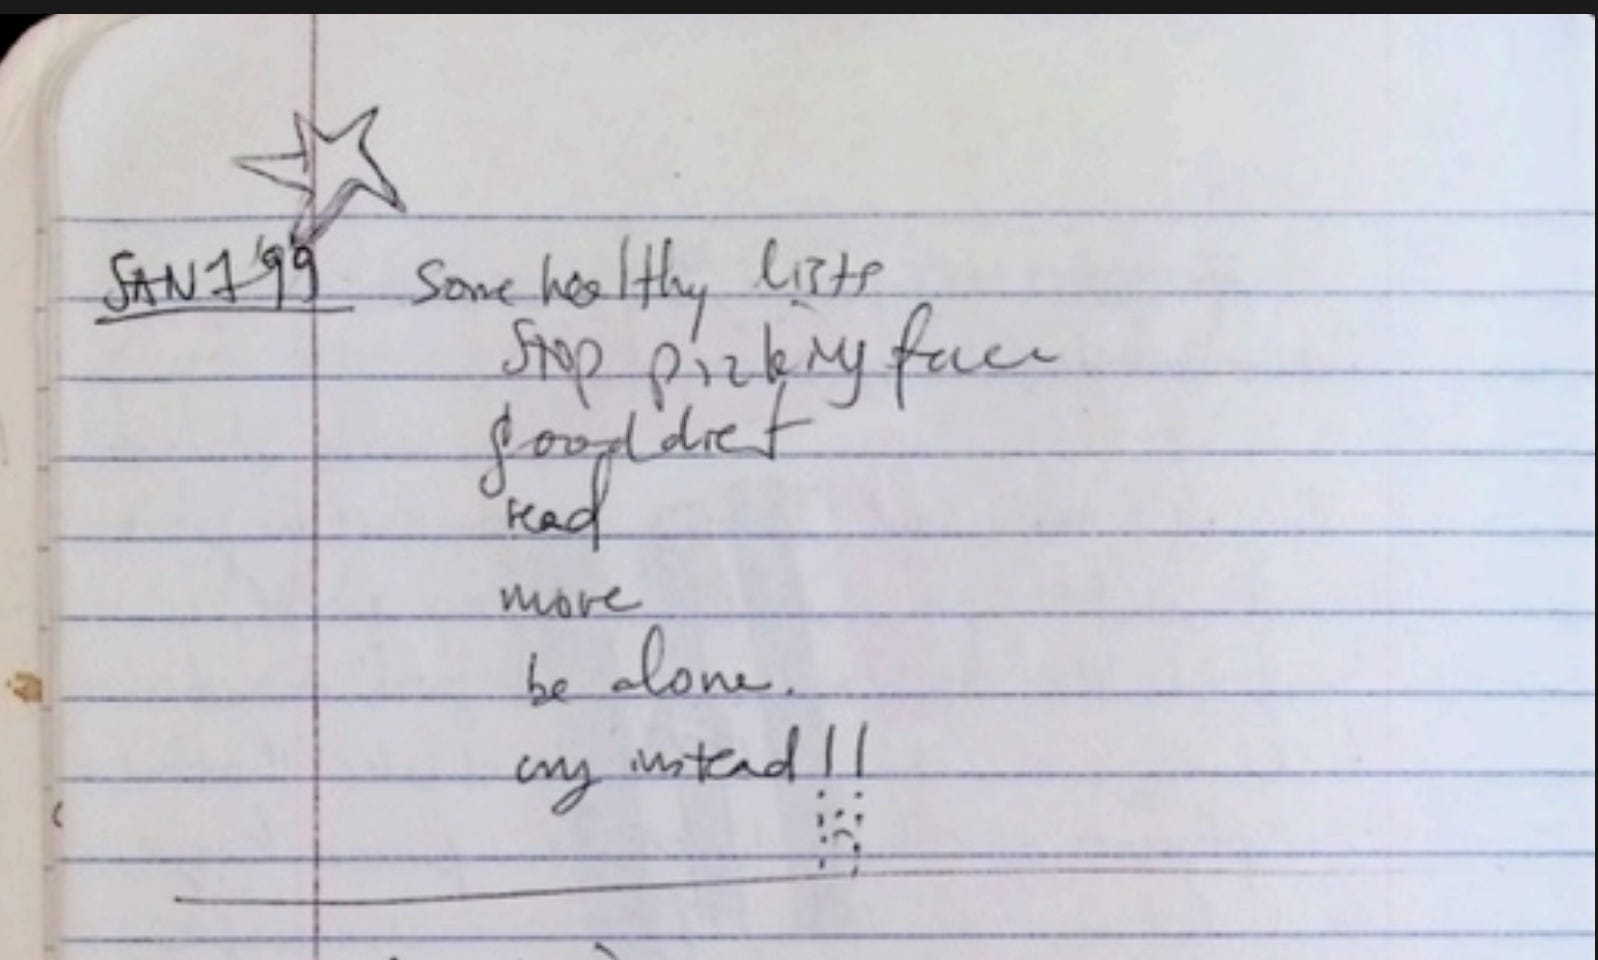 JAN 1 '99 Some healthy lists
Stop picking face
good diet
read
move
be alone.
cry instead!!